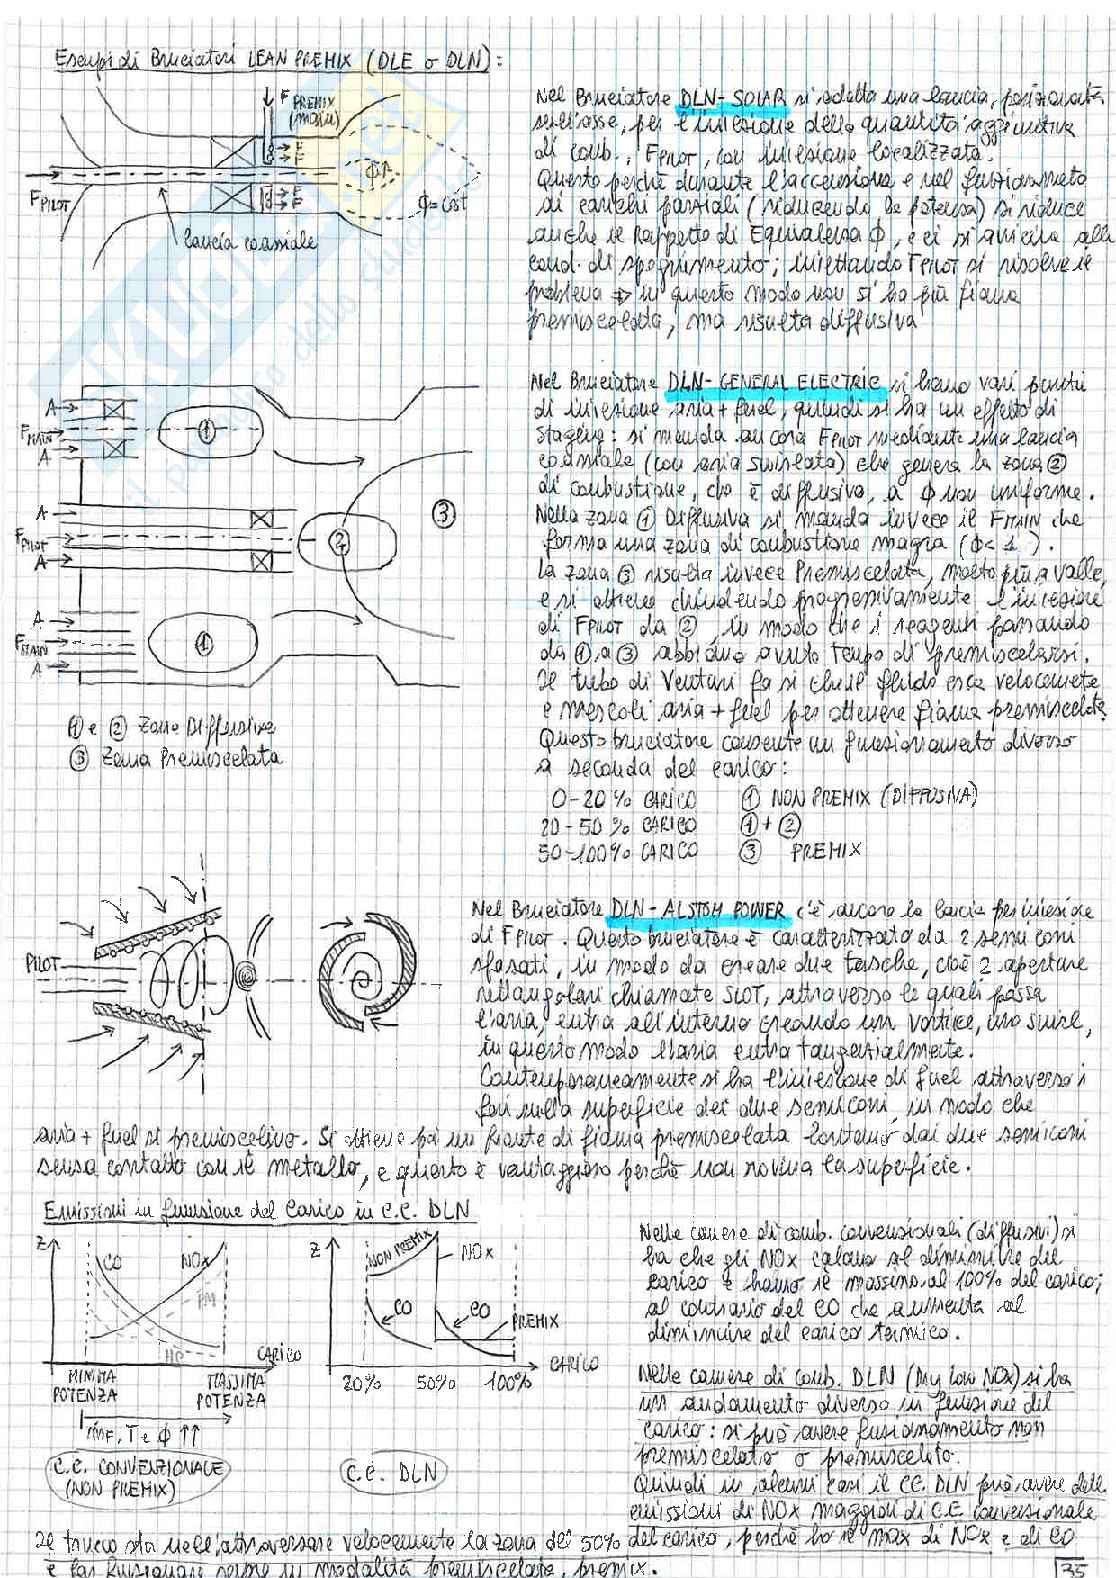 Esempi di Bruciatori LEAN PREMIX (DLE o DLN):
F PREMIX
(MAIN)
F
F
F
F
FPILOT
lancia coassiale
Φ↑
Φ=cost
Nel Bruciatore DLN-SOLAR si adotta una lancia, posizionata
sull'asse, per l'iniezione della quantità aggiuntiva
di comb., FPILOT, con iniezione localizzata.
Questo perché durante l'accensione e nel funzionamento
di carichi parziali (riducendo la potenza) si riduce
anche il Rapporto di Equivalenza Φ, e ci si avvicina alle
cond. di spegnimento; iniettando FPILOT si risolve il
problema ⇒ in questo modo non si ha più fiamma
premiscelata, ma risulta diffusiva
Nel Bruciatore DLN-GENERAL ELECTRIC si hanno vari punti
di iniezione aria + fuel, quindi si ha un effetto di
staging: si manda ancora FPILOT mediante una lancia
coassiale (con aria swirlata) che genera la zona ②
di combustione, che è diffusiva, a Φ non uniforme.
Nella zona ① Diffusiva si manda invece il FMAIN che
forma una zona di combustione magra (Φ<1).
La zona ③ risulta invece Premiscelata, molto più a valle,
e si ottiene chiudendo progressivamente l'iniezione
di FPILOT da ② in modo che i reagenti passando
da ① a ③ abbiano avuto tempo di premiscelarsi.
Il tubo di Venturi fa sì che il fluido esca velocemente
e mescoli aria + fuel per ottenere fiamma premiscelata.
Questo bruciatore consente un funzionamento diverso
a seconda del carico:
0-20% CARICO ① NON PREMIX (DIFFUSIVA)
20-50% CARICO ①+②
50-100% CARICO ③ PREMIX
A
FMAIN
A
①
A
FPILOT
A
②
③
A
FMAIN
A
①
① e ② Zone Diffusive
③ Zona Premiscelata
PILOT
Nel Bruciatore DLN-ALSTOM POWER c'è ancora la lancia per iniezione
di FPILOT. Questo bruciatore è caratterizzato da 2 semi coni
sfasati, in modo da creare due tasche, cioè 2 aperture
rettangolari chiamate SLOT, attraverso le quali passa
l'aria, entra all'interno creando un vortice, uno swirl,
in questo modo l'aria entra tangenzialmente.
Contemporaneamente si ha l'iniezione di fuel attraverso i
fori sulla superficie dei due semiconi, in modo che
aria + fuel si premiscelino. Si ottiene poi un fronte di fiamma premiscelata lontano dai due semiconi
senza contatto con il metallo, e questo è vantaggioso perché non rovina la superficie.
Emissioni in funzione del Carico in C.C. DLN
Z
CO
NOx
PM
HC
CARICO
MINIMA
POTENZA
MASSIMA
POTENZA
ṁF, T e Φ ↑↑
C.C. CONVENZIONALE
(NON PREMIX)
Z
NON PREMIX
NOx
CO
CO
PREMIX
CARICO
20% 50% 100%
C.C. DLN
Nelle camere di comb. convenzionali (diffusivi) si
ha che gli NOx calano al diminuire del
carico e hanno il massimo al 100% del carico;
al contrario del CO che aumenta al
diminuire del carico termico.
Nelle camere di comb. DLN (Dry Low NOx) si ha
un andamento diverso in funzione del
carico: si può avere funzionamento non
premiscelato o premiscelato.
Quindi in alcuni casi il CC. DLN può avere delle
emissioni di NOx maggiori di C.C. convenzionale
Il trucco sta nell'attraversare velocemente la zona del 50% del carico, perché ho il max di NOx e di CO
e far funzionare sempre in modalità premiscelata, premix.
35